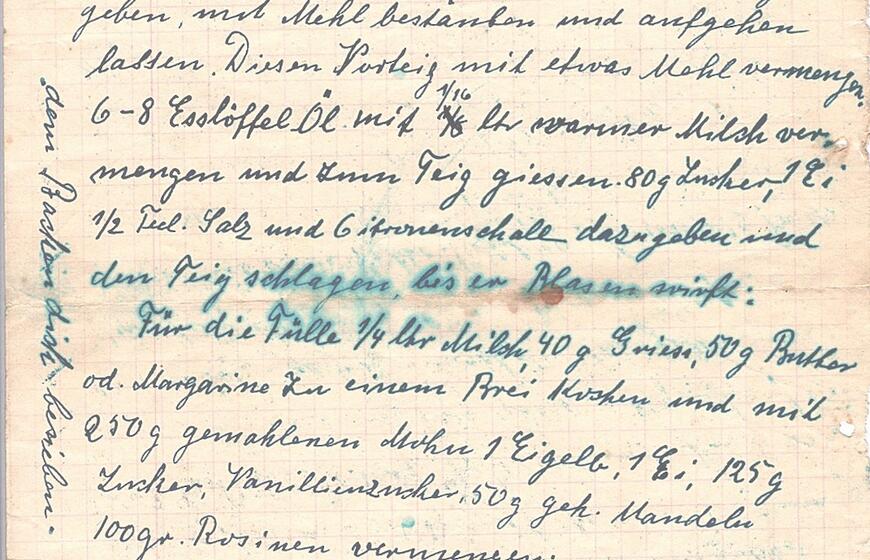 geben, mit Mehl bestäuben und aufgehen
lassen. Diesen Vorteig mit etwas Mehl vermengen.
6-8 Esslöffel Öl mit 1/16 ltr warmer Milch ver-
mengen und zum Teig giessen. 80g Zucker, 1 Ei
1/2 Teel. Salz und Citronenschale dazugeben und
den Teig schlagen, bis er Blasen wirft:
Für die Fülle 1/4 ltr Milch, 40 g Griess, 50g Butter
od. Margarine zu einem Brei kochen und mit
250g gemahlenen Mohn 1 Eigelb, 1 Ei, 125g
Zucker, Vanillienzucker, 50g geh. Mandeln
100gr. Rosinen vermengen.
dem Backen dick besieben.